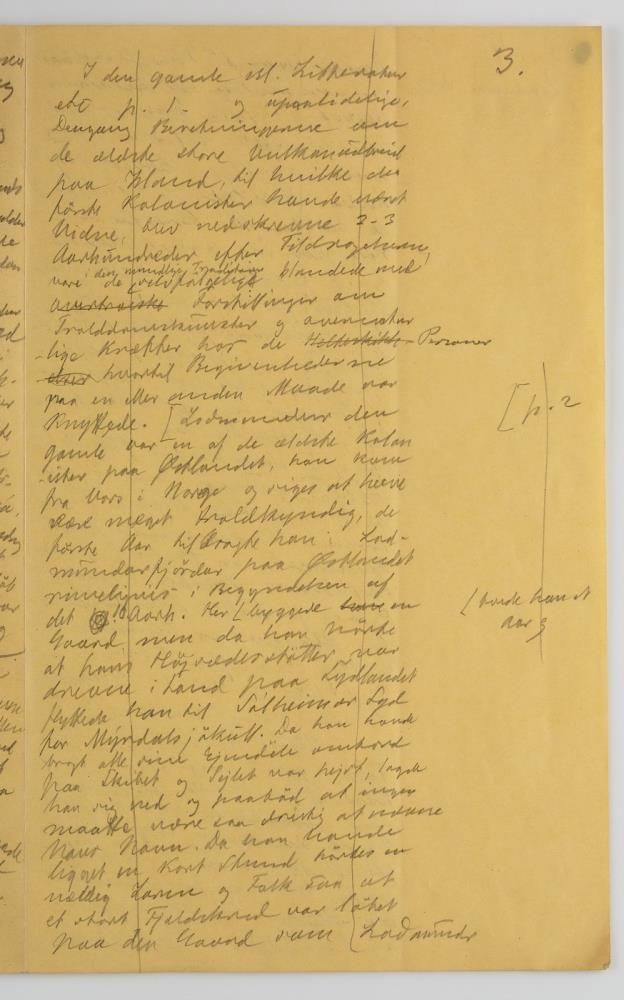 3.
I den gamle isl. Litteratur
p. 1 og upaalidelige,
Dengang Beretningerne om
de ældste store Vulkanudbrud
paa Island, til hvilke de
første Kolonister havde været
Vidne, blev nedskrevne 2-3
Aarhundreder efter Tildragelserne,
i den mundtlige Tradition
vare de blandede med
overtroiske Fortællinger om
Trolddomskunster og eventyr
lige Kræfter hos de Personer
hvortil Begivenhederne
paa en eller anden Maade var
knyttede. [Lodmundur den
[p. 2
gamle var en af de ældste Kolon
-ister paa Østlandet, han kom
fra Vors i Norge og siges at have
være meget troldkyndig, de
første Aar tilbragte han i Lod-
mundarfjördur paa Østlandet
rimeligvis i Begyndelsen af
det 10 Aarh. Her byggede en
[boede han et
Aar og
Gaard, men da han hørte
at hans Højsædesstøtter var
drevne i Land paa Sydlandet
flyttede han til Solheimar Syd
for Mýrdalsjökull. Da han havde
bragt alle sine Ejendele ombord
paa Skibet og Sejlet var hejst, lagde
han sig ned og paabød at ingen
maatte være saa dristig at nævne
hans Navn. Da han havde
ligget en kort Stund hørtes en
vældig Larm og Folk saa at
et stort Fjeldskred var løbet
paa den Gaard som Lodmundr